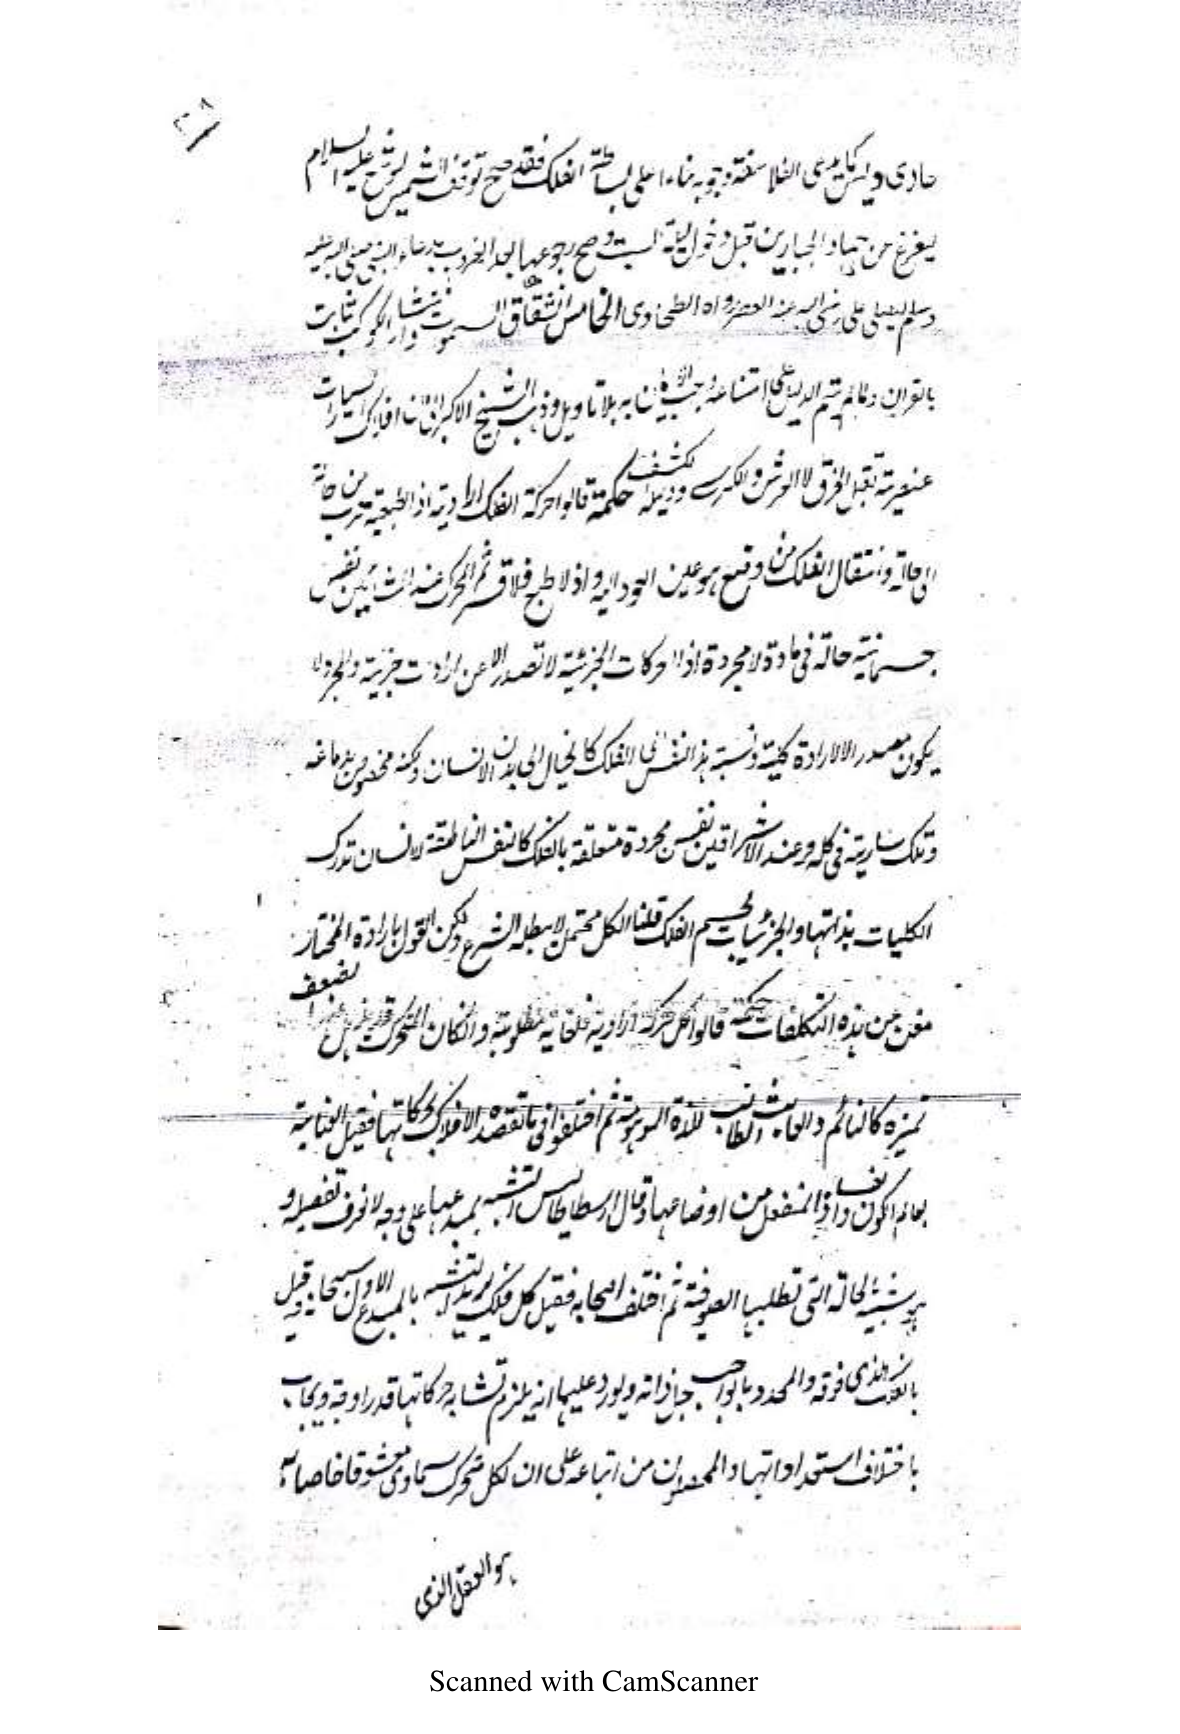 حادى وليس كما يدعى الفلاسفة وجوبه بناءا على بساطة الفلك فقد صح توقف الشمس ليوشع عليه السلام
ليفرغ من جهاد الجبارين قبل دخول ليلة السبت وصح رجوعها بعد الغروب بدعاء النبى صلى الله عليه
وسلم ليصلى على رضى الله عنه العصر رواه الطحاوى الخامس انشقاق السموت وانتشار الكواكب ثابت
بالقران ولما لم يتم الدليل على امتناعه وجب الايمان به بلا تاويل وذهب الشيخ الاكبر الى ان افلاك السيارات
عنصرية تقبل الخرق لا العرش والكرسى ودليله كشف حكمة قالوا حركة الفلك ارادية اذ الطبعية هرب من حالة
الى حالة وانتقال الفلك من وضع هو عين العود اليه واذ لا طبع فلا قسر ثم المحرك عند المشائين نفس
جسمانية حالة فى مادة لا مجردة اذ الحركات الجزئية لا تصدر الا عن ارادات جزئية والمجرد لا
يكون مصدر الا لارادة كلية ونسبة هذا النفس الى الفلك كالخيال الى بدن الانسان ولكنه مخصوص بدماغه
وتلك سارية فى كله وعند الاشراقين نفس مجردة متعلقة بالفلك كالنفس الناطقة للانسان تدرك
الكليات بذاتها والجزئيات بجسم الفلك قلنا الكل محتمل لا يبطله الشرع ولكن القول بارادة المختار
مغن عن هذه التكلفات حكمة قالوا لكل حركة ارادية فلها غاية مطلوبة وان كان المتحرك قد يذهل
لضعف
تميزه كالنائم والعابث الطالب للذة الموهومة ثم اختلفوا فى ما تقصده الافلاك بحركاتها فقيل العناية
بعالم الكون والفساد اذ المنفعل من اوضاعها وقال ارسطاطاليس التشبه بمبدعها على وجه لا نعرف تفصيله و
هو شبيه بالحالة التى تطلبها الصوفية ثم اختلف اصحابه فقيل كل فلك يريد التشبه بالمبدع الاول سبحانه وقيل
بالفلك الذى فوقه والمحدد بالواجب جل ذاته ويورد عليها انه يلزم تشابه حركاتها قدرا وجهة ويجاب
باختلاف استعداداتها والمحصلون من اتباعه على ان لكل متحرك سماوى معشوقا خاصا به
هو العقل الذى
Scanned with CamScanner